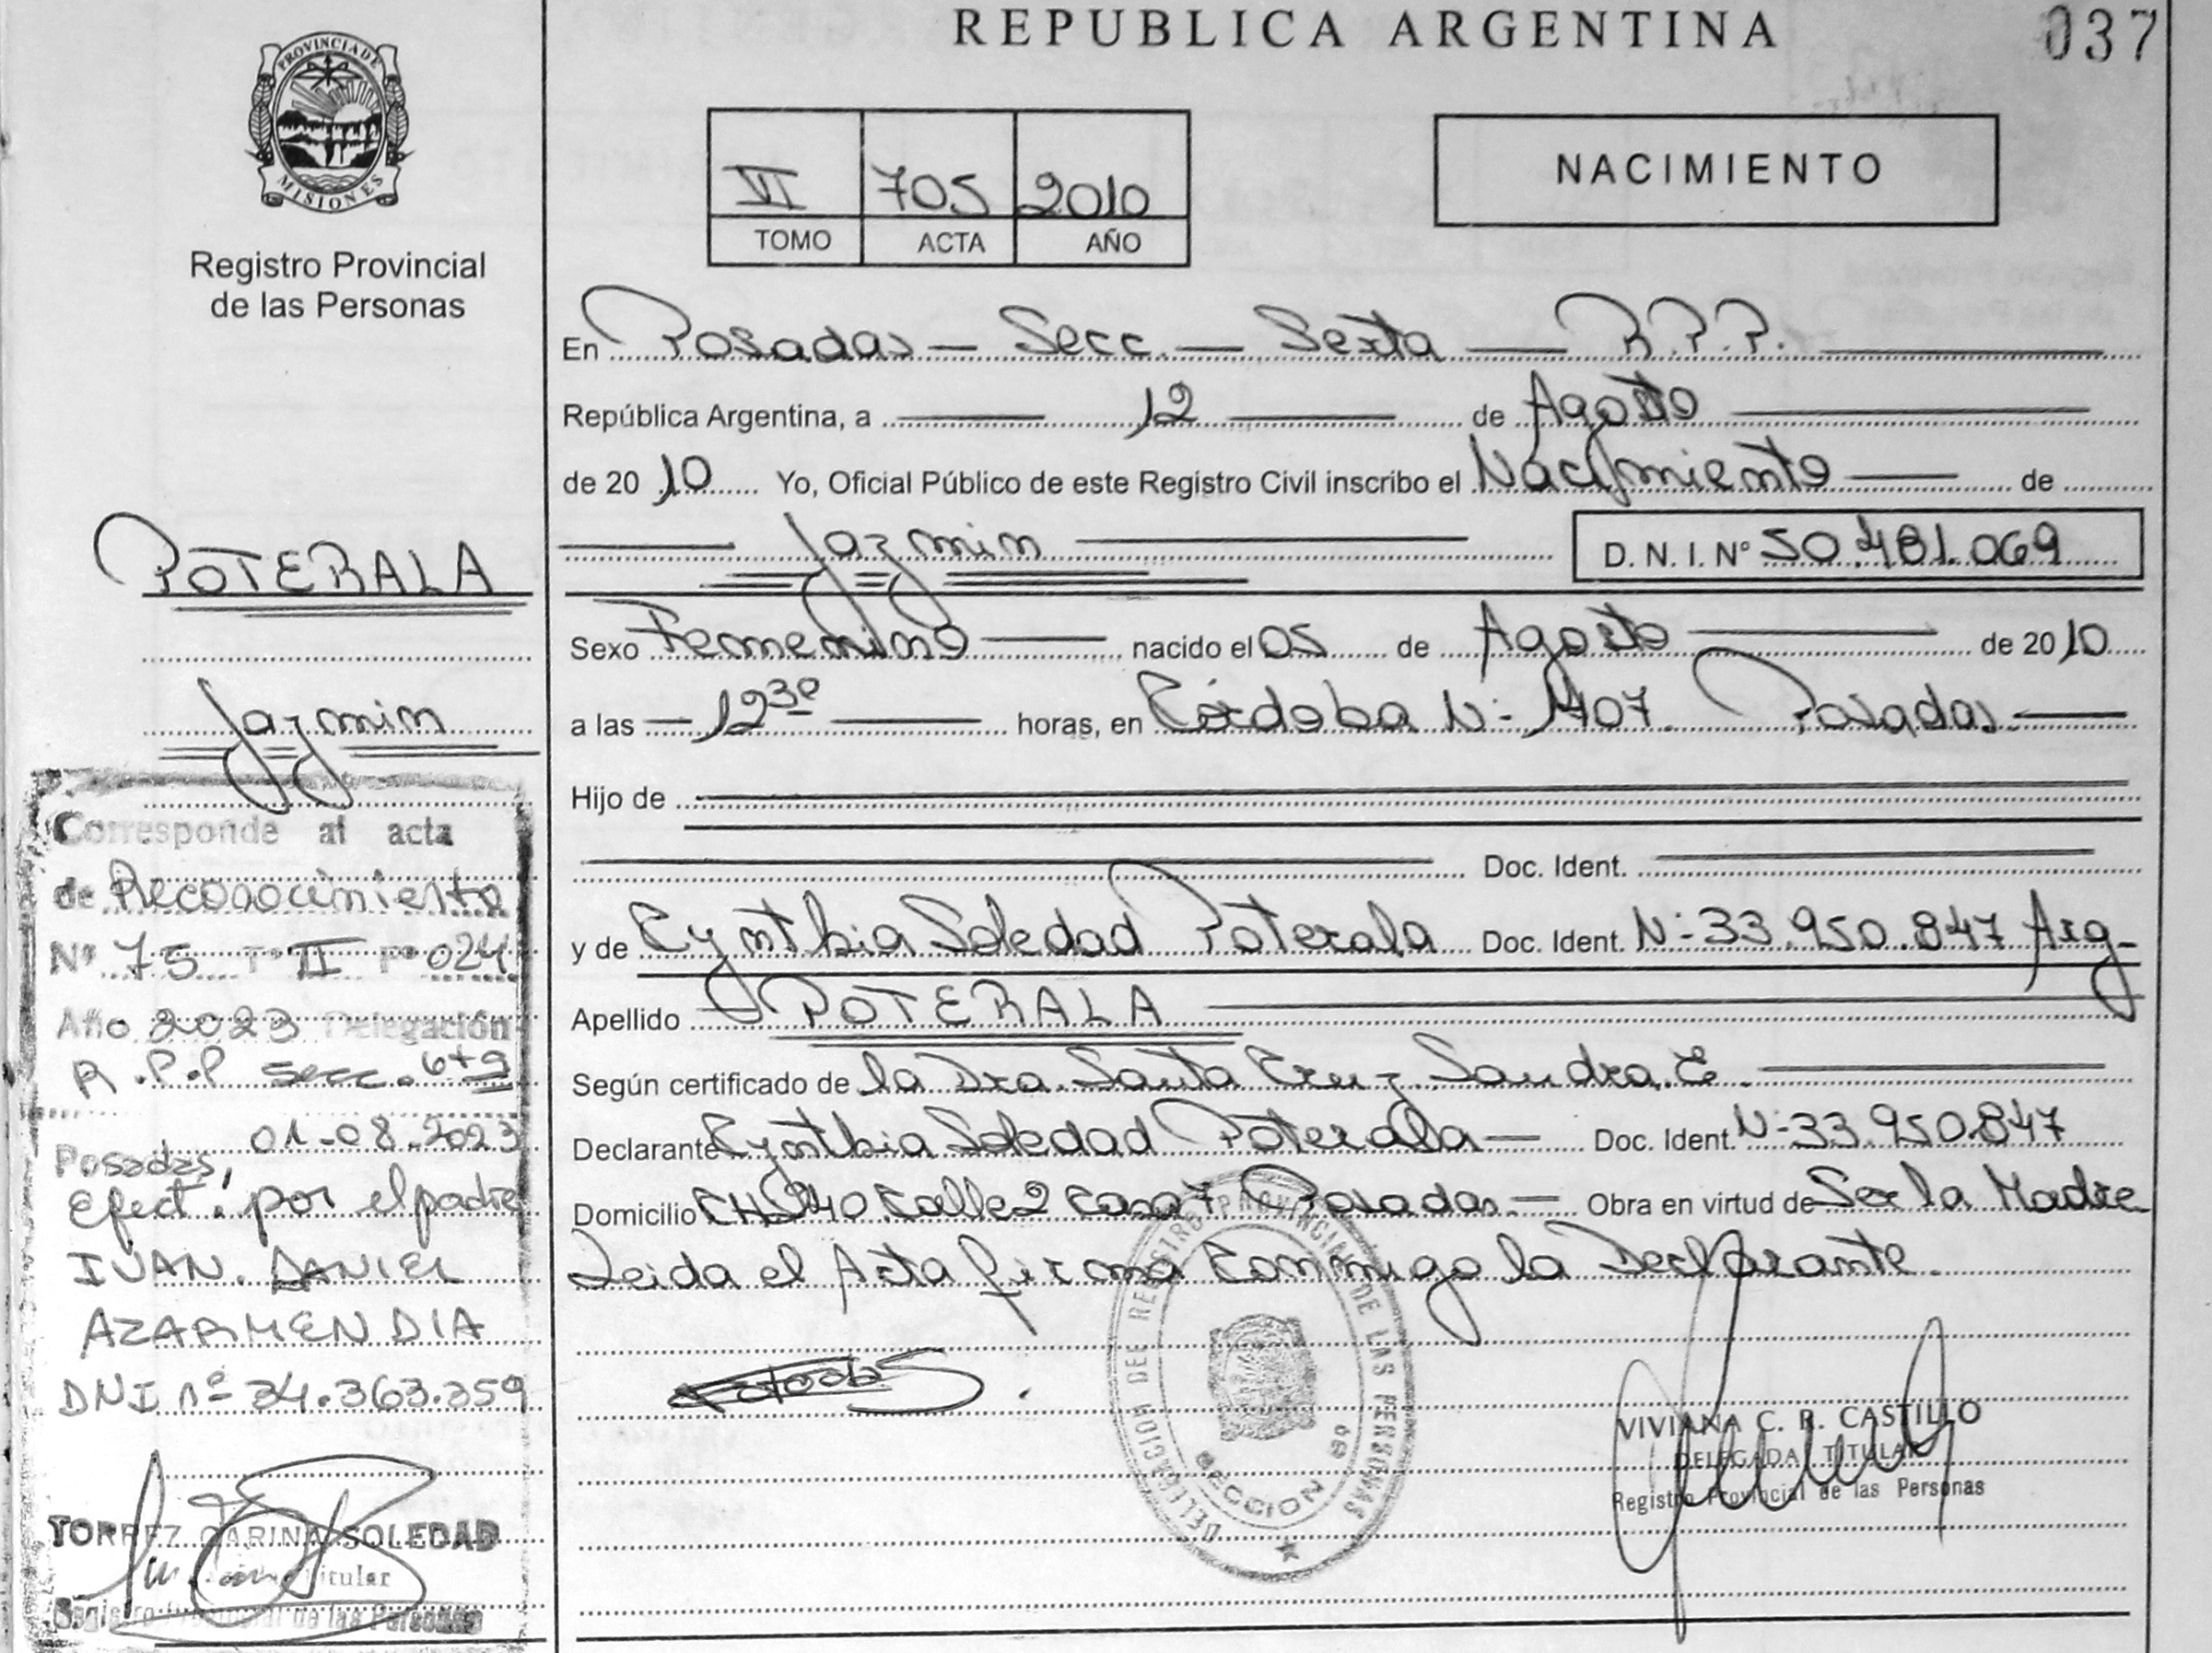 REPUBLICA ARGENTINA
037
PROVINCIA DE
MISIONES
Registro Provincial
de las Personas
VI 705 2010
TOMO ACTA AÑO
NACIMIENTO
En Posadas — Secc. — Sexta — R.P.P.
República Argentina, a 12 de Agosto
de 2010 Yo, Oficial Público de este Registro Civil inscribo el Nacimiento de
Jazmin D. N. I. Nº 50.481.069
Sexo Femenino nacido el 05 de Agosto de 2010
a las 12 30 horas, en Córdoba N- 1407. Posadas.
Hijo de
Doc. Ident.
y de Cynthia Soledad Poterala Doc. Ident. N- 33.950.847 Arg-
Apellido POTERALA
Según certificado de la Dra. Santa Cruz Sandra. E.
Declarante Cynthia Soledad Poterala Doc. Ident. N- 33.950.847
Domicilio CH 240 Calle 2 Casa 7 Posadas. Obra en virtud de Ser la Madre
Leida el Acta firma Conmigo la Declarante.
POTERALA
Jazmin
Corresponde al acta
de Reconocimiento
Nº 75 Tº II Fº 024
Año 2023 Delegación
R.P.P secc. 6ta
Posadas, 01-08-2023
Efect. por el padre
IVAN. DANIEL
AZARMENDIA
DNI nº 34.363.359
TORREZ CARINA SOLEDAD
Titular
Registro Provincial de las Personas
DELEGACION DEL REGISTRO PROVINCIAL DE LAS PERSONAS
SECCION 6ª
VIVIANA C. R. CASTILLO
DELEGADA TITULAR
Registro Provincial de las Personas